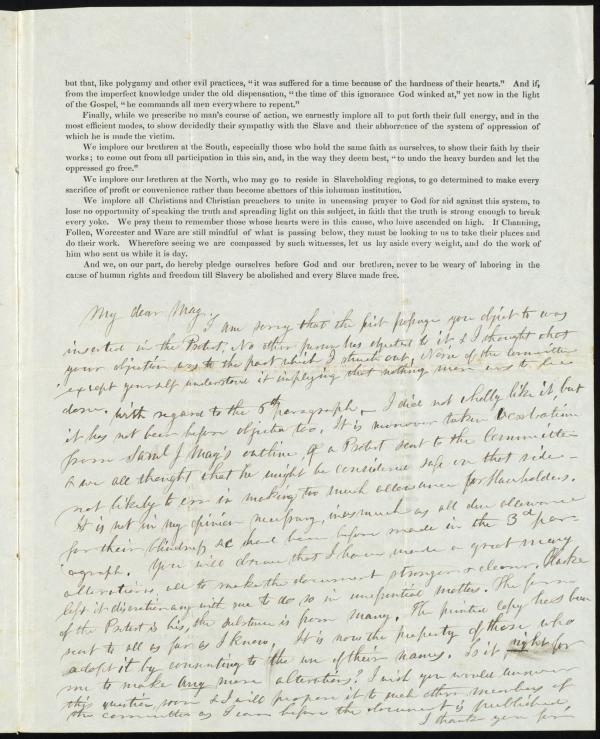 but that, like polygamy and other evil practices, "it was suffered for a time because of the hardness of their hearts." And if,
from the imperfect knowledge under the old dispensation, "the time of this ignorance God winked at," yet now in the light
of the Gospel, "he commands all men everywhere to repent."
Finally, while we prescribe no man's course of action, we earnestly implore all to put forth their full energy, and in the
most efficient modes, to show decidedly their sympathy with the Slave and their abhorrence of the system of oppression of
which he is made the victim.
We implore our brethren at the South, especially those who hold the same faith as ourselves, to show their faith by their
works; to come out from all participation in this sin, and, in the way they deem best, "to undo the heavy burden and let the
oppressed go free."
We implore our brethren at the North, who may go to reside in Slaveholding regions, to go determined to make every
sacrifice of profit or convenience rather than become abettors of this inhuman institution.
We implore all Christians and Christian preachers to unite in unceasing prayer to God for aid against this system, to
lose no opportunity of speaking the truth and spreading light on this subject, in faith that the truth is strong enough to break
every yoke. We pray them to remember those whose hearts were in this cause, who have ascended on high. If Channing,
Follen, Worcester and Ware are still mindful of what is passing below, they must be looking to us to take their places and
do their work. Wherefore seeing we are compassed by such witnesses, let us lay aside every weight, and do the work of
him who sent us while it is day.
And we, on our part, do hereby pledge ourselves before God and our brethren, never to be weary of laboring in the
cause of human rights and freedom till Slavery be abolished and every Slave made free.
My dear May,
I am sorry that the first passage you object to was
inserted in the Protest. No other person has objected to it & I thought that
your objection was to the part which I struck out, None of the Committee
except yourself understood it implying that nothing more was to be
done. With regard to the 5th paragraph - I did not wholly like it, but
it has not been before objected too, It is moreover taken verbatim
from Saml J May's outline, of a Protest sent to the Committee
& we all thought that he might be considered safe on that side -
not likely to err in making too much allowance for slaveholders.
It is not in my opinion necessary, inasmuch as all due allowance
for their blindness &c had been before made in the 3d par-
agraph. You will observe that I have made a great many
alterations, all to make the document stronger & clearer. Clarke
left it discretionary with me to do so in unessential matters. The form
of the Protest is his, the substance is from many. The printed copy has been
sent to all as far as I know. It is now the property of those who
adopt it by consenting to the use of their names. Is it right for
me to make any more alterations? I wish you would answer
this question soon & I will propose it to such other members of
the committee as I can before the document is published,
I thank you for